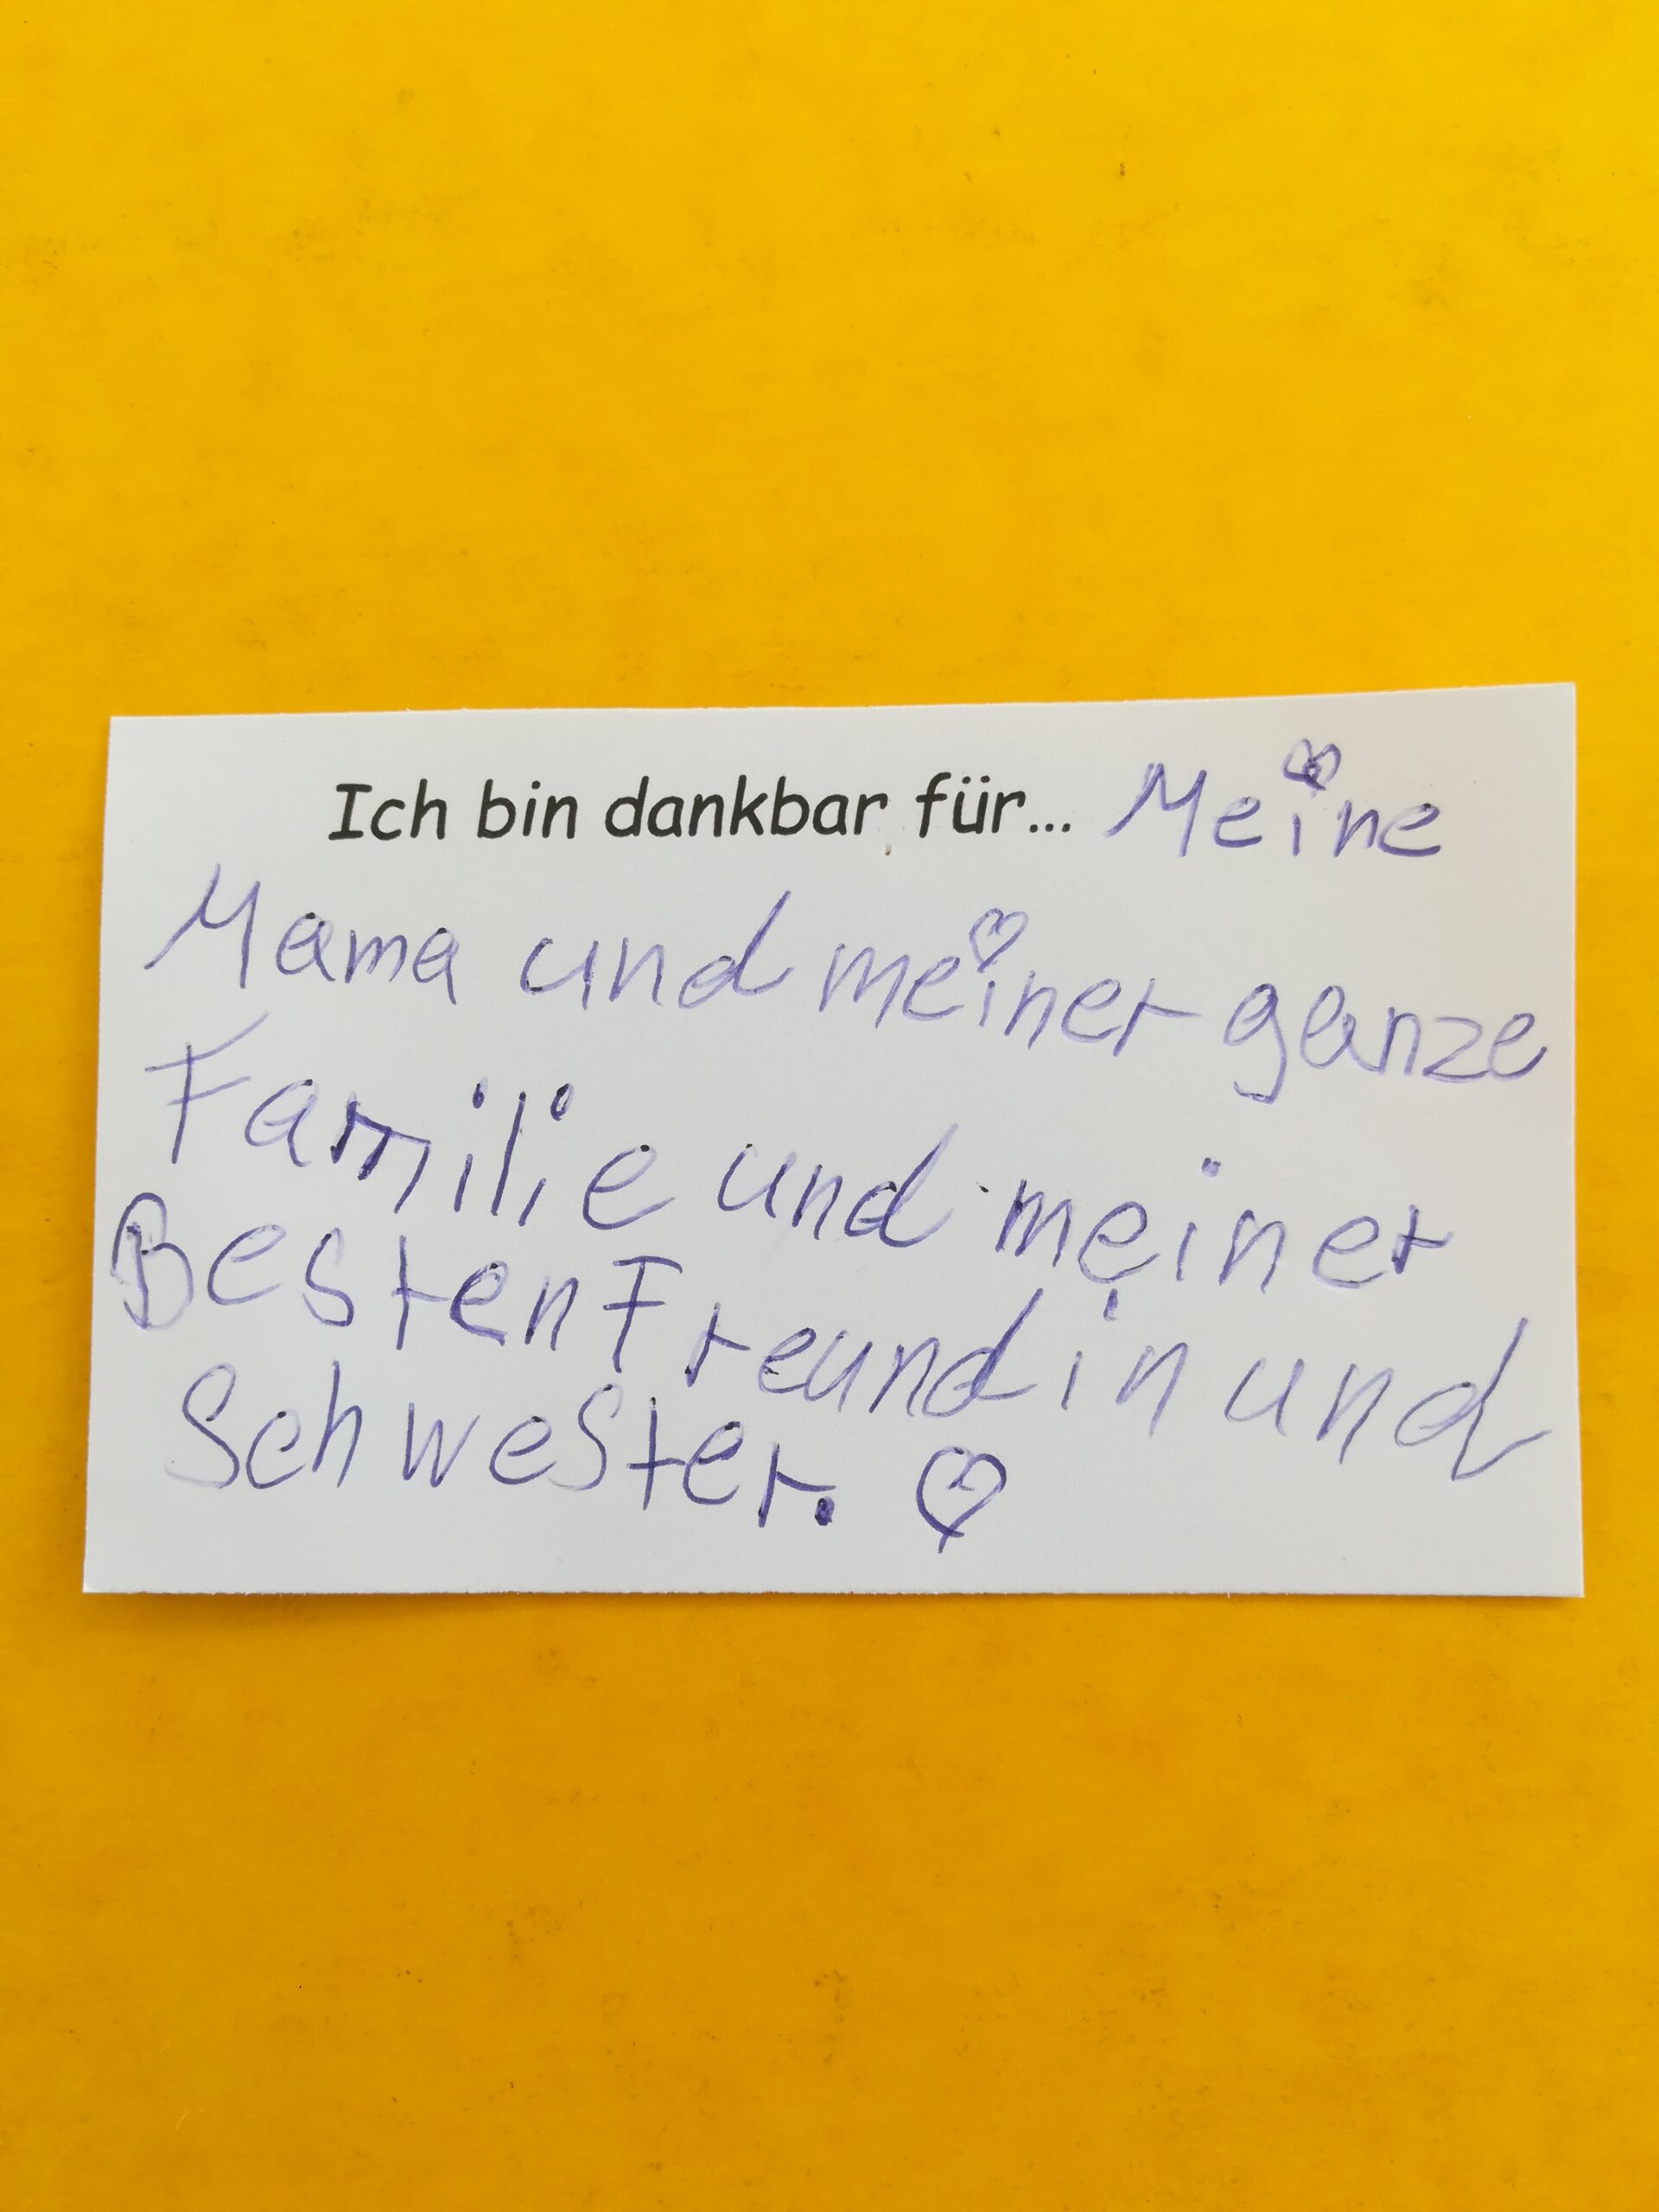 Ich bin dankbar für... Meine
Mama und meiner ganze
Familie und meiner
Besten Freundin und
Schwester. ♡